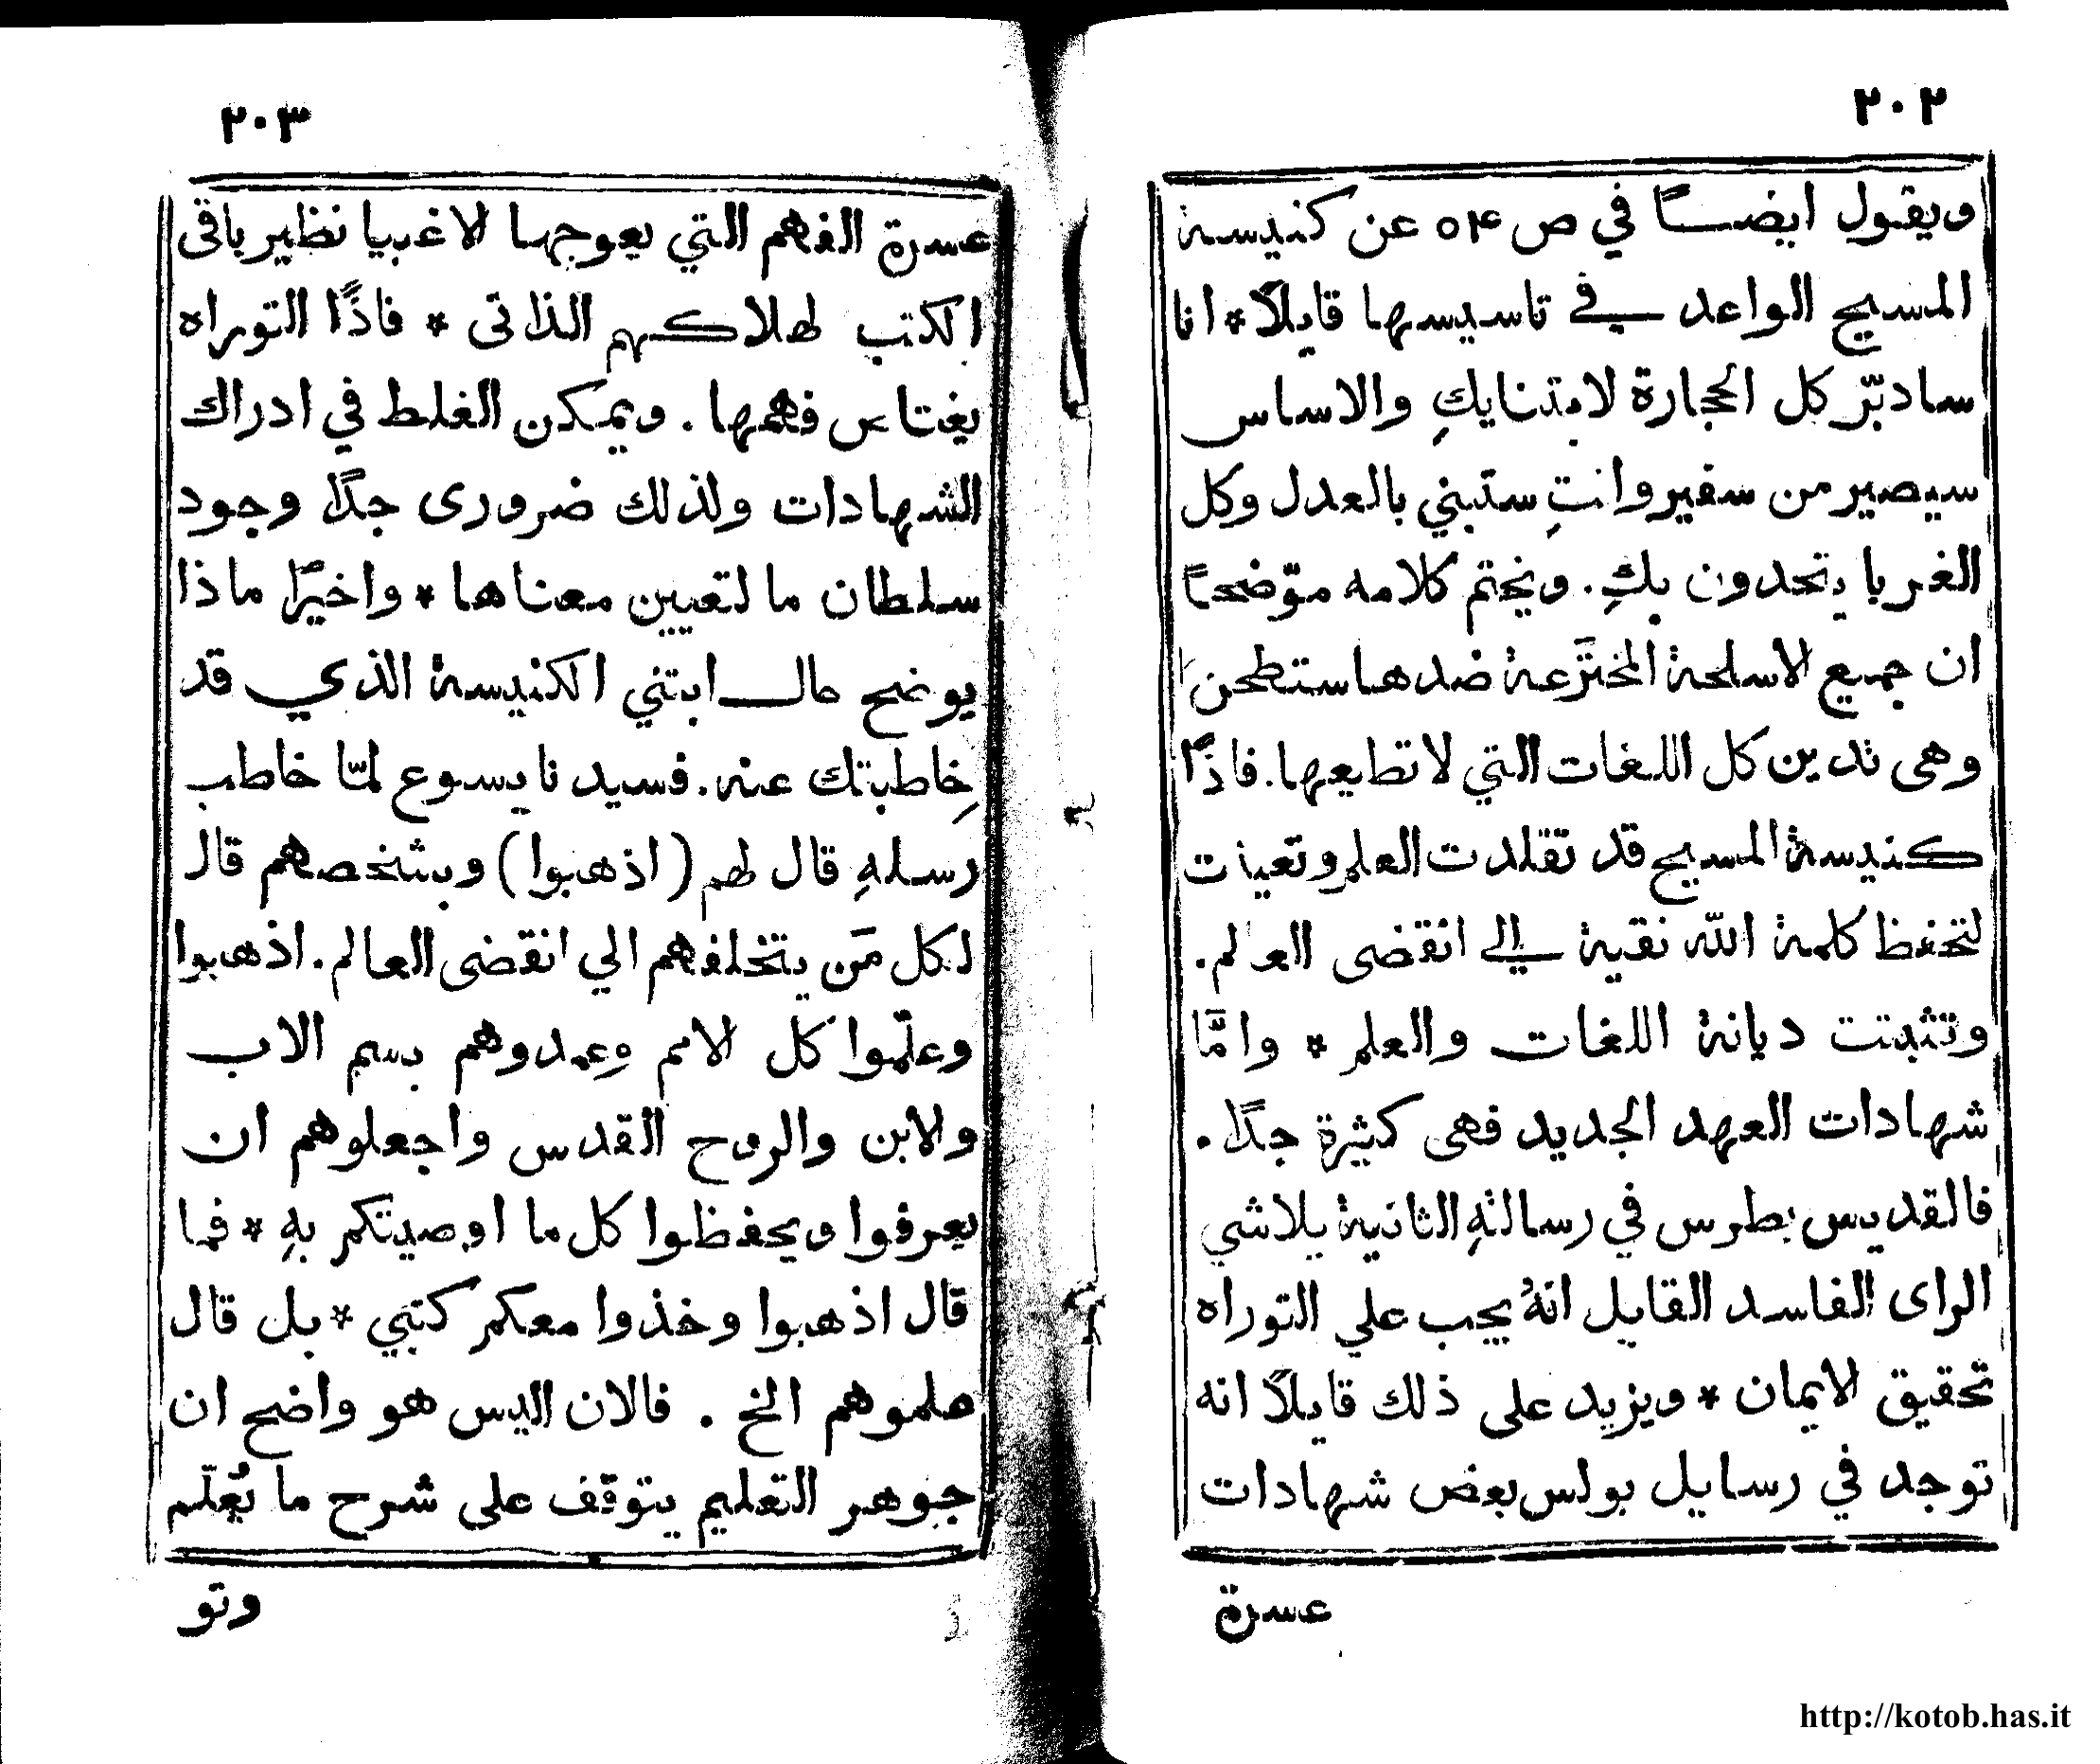 ٢٠٢
ويقول ايضًا في ص ٥۴ عن كنيسة
المسيح الواعد في تاسيسها قايلًا * انا
سادبّر كل الحجارة لابتنايكِ والاساس
سيصير من سفير وانتِ ستبني بالعدل وكل
الغربا يتحدون بكِ. ويختم كلامه موّضحًا
ان جميع الاسلحة المخترَعة ضدها ستطحن
وهي تدين كل اللغات التي لا تطايعها. فاذًا
كنيسة المسيح قد تقلدت العلم وتعينت
لتحفظ كلمة الله نقية الي انقضى العالم.
وتثبتت ديانة اللغات والعلم * وامَّا
شهادات العهد الجديد فهى كثيرة جدًا.
فالقديس بطرس في رسالتهِ الثانية يلاشي
الراى الفاسد القايل انهُ يجب علي التوراه
تحقيق الايمان * ويزيد على ذلك قايلًا انه
توجد في رسايل بولس بعض شهادات
عسرة
٢٠٣
عسرة الفهم التي يعوجها الاغبيا نظير باقى
الكتب لهلاكهم الذاتى * فاذًا التوراه
يغتاص فهمها. ويمكن الغلط في ادراك
الشهادات ولذلك ضرورى جدًا وجود
سلطان ما لتعيين معناها * واخيرًا ماذا
يوضح حال ابتني الكنيسة الذي قد
خاطبتك عنه. فسيدنا يسوع لمّا خاطب
رسلهِ قال لهم (اذهبوا) وبشخصهم قال
لكل مَن يتخلفهم الي انقضى العالم. اذهبوا
وعلّموا كل الامم وعمدوهم بسم الاب
والابن والروح القدس واجعلوهم ان
يعرفوا ويحفظوا كل ما اوصيتكم بهِ * فما
قال اذهبوا وخذوا معكم كتبي * بل قال
علموهم الخ . فالان اليس هو واضح ان
جوهر التعليم يتوقف على شرح ما يُعلّم
وتو
http://kotob.has.it